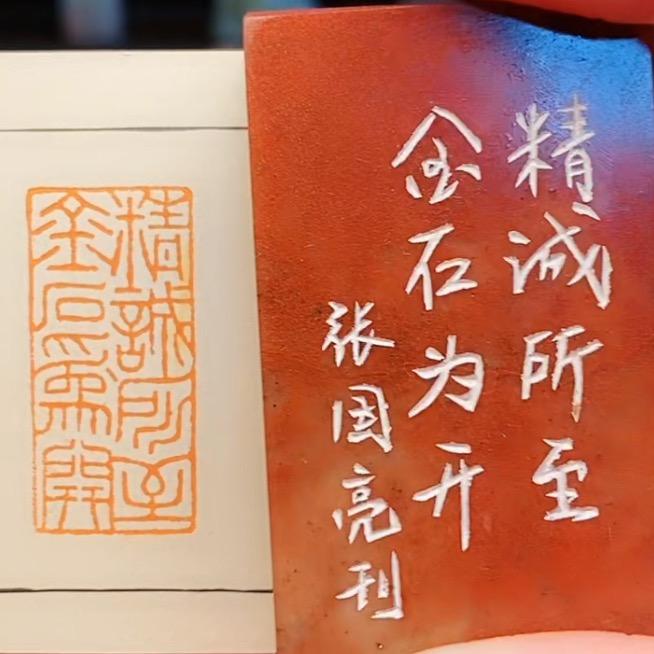 精诚所至
金石为开
张国亮刊
精誠所至
金石為開